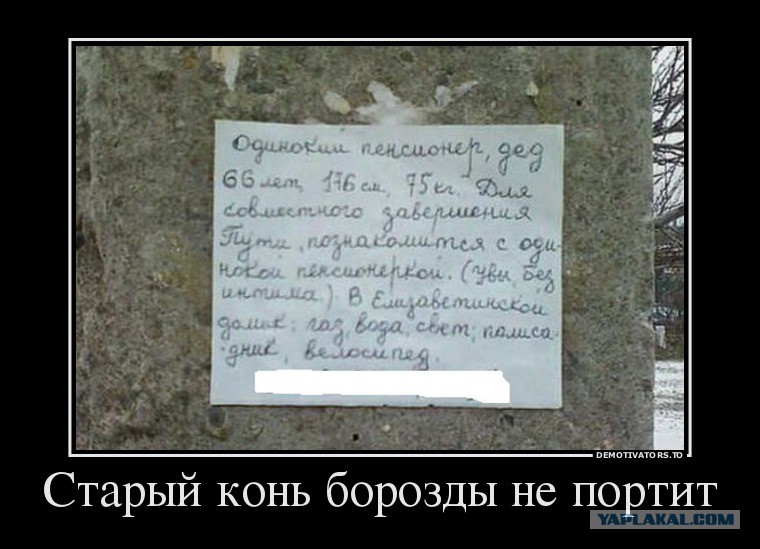 Одинокий пенсионер, дед
66 лет, 176 см, 75 кг. Для
совместного завершения
Пути, познакомится с оди-
нокой пенсионеркой. (Увы, без
интима.) В Елизаветинской
домик: газ, вода, свет, полиса-
-дник, велосипед.
DEMOTIVATORS.TO
Старый конь борозды не портит
YAPLAKAL.COM